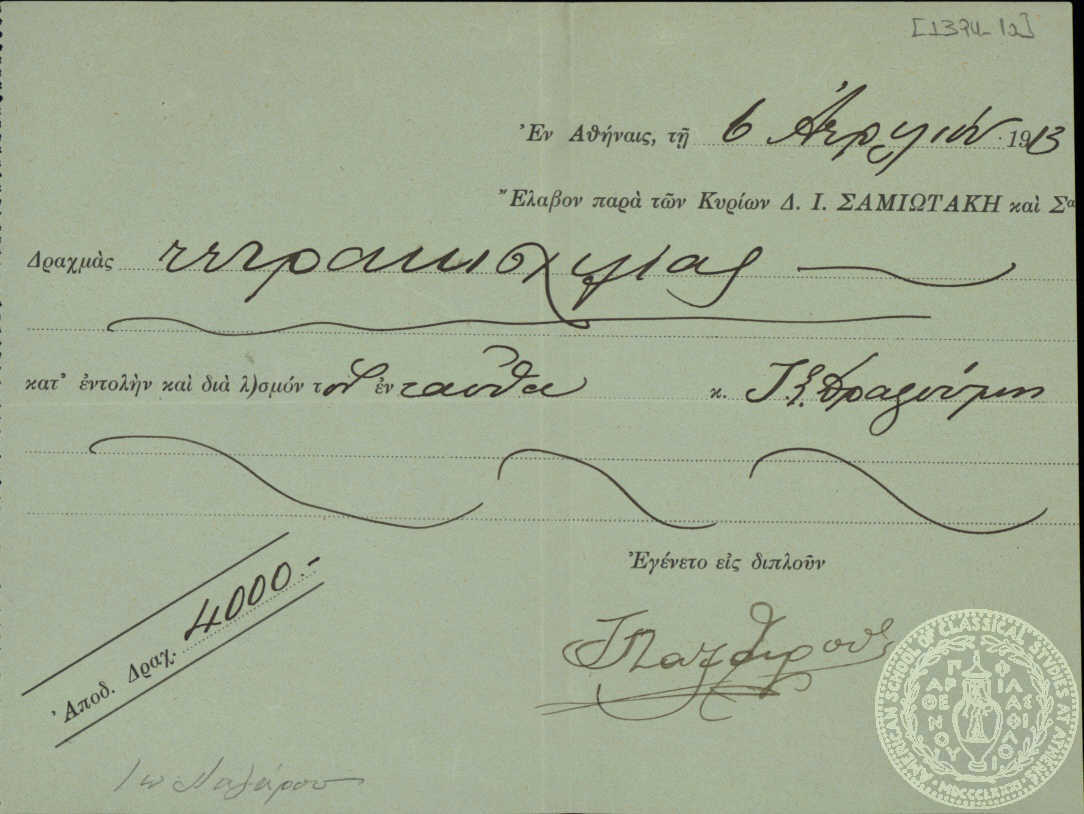 [1374-12]
Ἐν Ἀθήναις, τῇ 6 Ἀπριλίου 1913
Ἔλαβον παρὰ τῶν Κυρίων Δ. Ι. ΣΑΜΙΩΤΑΚΗ καὶ Σᵃ
Δραχμὰς τετρακισχιλίας
κατ' ἐντολὴν καὶ διὰ λ)σμόν τοῦ ἐνταῦθα κ. Ι. Σ. Δραγούμη
Ἀποδ. Δραχ. 4000.-
Ἐγένετο εἰς διπλοῦν
Ι Ναζάρου
AMERICAN SCHOOL OF CLASSICAL STUDIES AT ATHENS
ΠΑΡΘΕΝΟΥ ΦΙΛΑΣ ΦΙΟΥ
MDCCCLXXXI